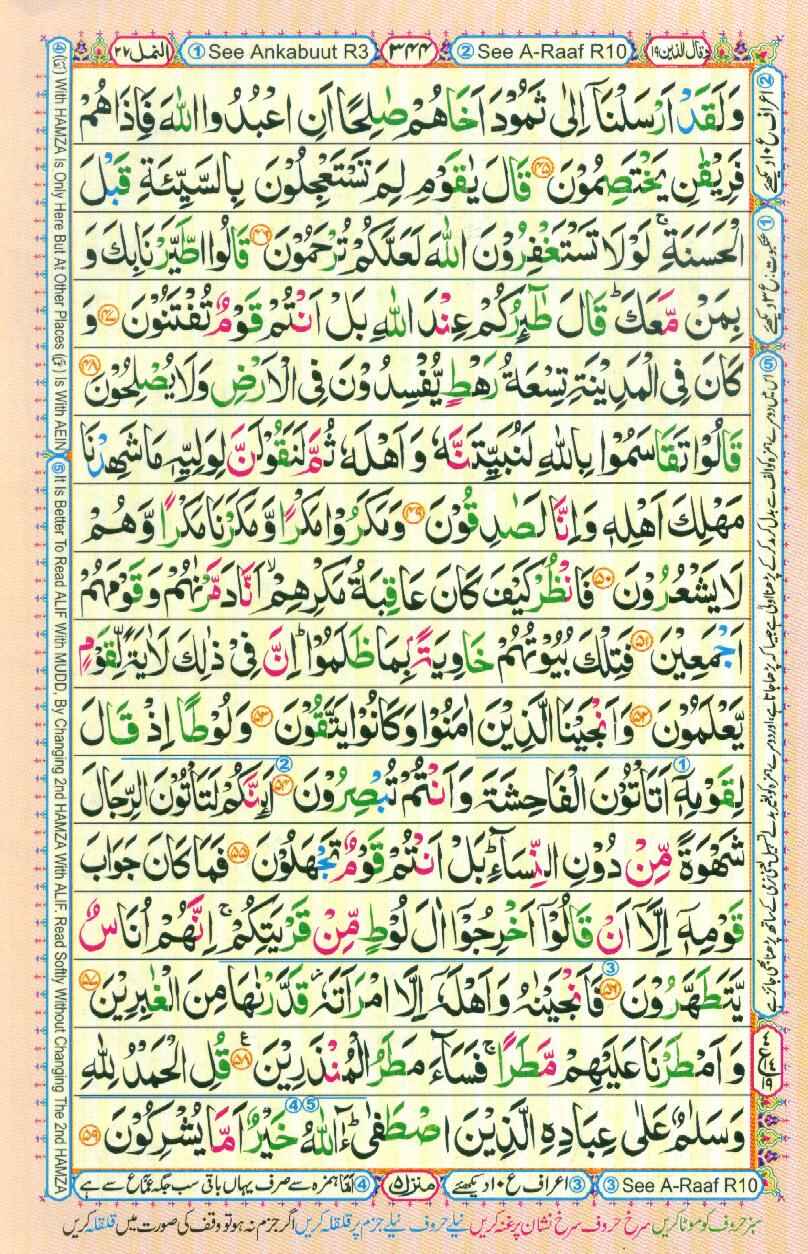 وقال الذین ۱۹
② See A-Raaf R10
۳۴۴
① See Ankabuut R3
النمل ۲۷
وَلَقَدْ اَرْسَلْنَاۤ اِلٰی ثَمُوْدَ اَخَاهُمْ صٰلِحًا اَنِ اعْبُدُوا اللّٰهَ فَاِذَا هُمْ
فَرِیْقٰنِ یَخْتَصِمُوْنَ ﴿۴۵﴾ قَالَ یٰقَوْمِ لِمَ تَسْتَعْجِلُوْنَ بِالسَّیِّئَةِ قَبْلَ
الْحَسَنَةِ ۚ لَوْ لَا تَسْتَغْفِرُوْنَ اللّٰهَ لَعَلَّكُمْ تُرْحَمُوْنَ ﴿۴۶﴾ قَالُوا اطَّیَّرْنَا بِكَ وَ
بِمَنْ مَّعَكَ ؕ قَالَ طٰٓىِٕرُكُمْ عِنْدَ اللّٰهِ بَلْ اَنْتُمْ قَوْمٌ تُفْتَنُوْنَ ﴿۴۷﴾ وَ
كَانَ فِی الْمَدِیْنَةِ تِسْعَةُ رَهْطٍ یُّفْسِدُوْنَ فِی الْاَرْضِ وَلَا یُصْلِحُوْنَ ﴿۴۸﴾
قَالُوْا تَقَاسَمُوْا بِاللّٰهِ لَنُبَیِّتَنَّهٗ وَ اَهْلَهٗ ثُمَّ لَنَقُوْلَنَّ لِوَلِیِّهٖ مَا شَهِدْنَا
مَهْلِكَ اَهْلِهٖ وَاِنَّا لَصٰدِقُوْنَ ﴿۴۹﴾ وَمَكَرُوْا مَكْرًا وَّمَكَرْنَا مَكْرًا وَّهُمْ
لَا یَشْعُرُوْنَ ﴿۵۰﴾ فَانْظُرْ كَیْفَ كَانَ عَاقِبَةُ مَكْرِهِمْ ۙ اَنَّا دَمَّرْنٰهُمْ وَقَوْمَهُمْ
اَجْمَعِیْنَ ﴿۵۱﴾ فَتِلْكَ بُیُوْتُهُمْ خَاوِیَةًۢ بِمَا ظَلَمُوْا ؕ اِنَّ فِیْ ذٰلِكَ لَاٰیَةً لِّقَوْمٍ
یَّعْلَمُوْنَ ﴿۵۲﴾ وَاَنْجَیْنَا الَّذِیْنَ اٰمَنُوْا وَكَانُوْا یَتَّقُوْنَ ﴿۵۳﴾ وَلُوْطًا اِذْ قَالَ
لِقَوْمِهٖۤ اَتَاْتُوْنَ الْفَاحِشَةَ وَاَنْتُمْ تُبْصِرُوْنَ ﴿۵۴﴾ اَىِٕنَّكُمْ لَتَاْتُوْنَ الرِّجَالَ
شَهْوَةً مِّنْ دُوْنِ النِّسَآءِ ؕ بَلْ اَنْتُمْ قَوْمٌ تَجْهَلُوْنَ ﴿۵۵﴾ فَمَا كَانَ جَوَابَ
قَوْمِهٖۤ اِلَّاۤ اَنْ قَالُوْۤا اَخْرِجُوْۤا اٰلَ لُوْطٍ مِّنْ قَرْیَتِكُمْ ۚ اِنَّهُمْ اُنَاسٌ
یَّتَطَهَّرُوْنَ ﴿۵۶﴾ فَاَنْجَیْنٰهُ وَاَهْلَهٗۤ اِلَّا امْرَاَتَهٗ ؗ قَدَّرْنٰهَا مِنَ الْغٰبِرِیْنَ ﴿۵۷﴾
وَ اَمْطَرْنَا عَلَیْهِمْ مَّطَرًا ۚ فَسَآءَ مَطَرُ الْمُنْذَرِیْنَ ﴿۵۸﴾ قُلِ الْحَمْدُ لِلّٰهِ
وَسَلٰمٌ عَلٰی عِبَادِهِ الَّذِیْنَ اصْطَفٰی ؕ ءٰٓاللّٰهُ خَیْرٌ اَمَّا یُشْرِكُوْنَ ﴿۵۹﴾
② اعراف ع ۱۰ دیکھئے
① عنکبوت: ع ۳ دیکھئے
④ (ءَ) With HAMZA Is Only Here But At Other Places (عَ) Is With AEIN
⑤ It Is Better To Read ALIF With MUDD, By Changing 2nd HAMZA With ALIF Read Softly Without Changing The 2nd HAMZA
③ See A-Raaf R10
③ اعراف ع ۱۰ دیکھئے
منزل ۵
④ اَمَّا ہمزہ سے صرف یہاں باقی سب جگہ عَمَّا ع سے ہے
سبز حروف کو موٹا کریں سرخ حروف سرخ نشان پر غنہ کریں نیلے حروف نیلے جزم پر قلقلہ کریں اگر جزم نہ ہو تو وقف کی صورت میں قلقلہ کریں